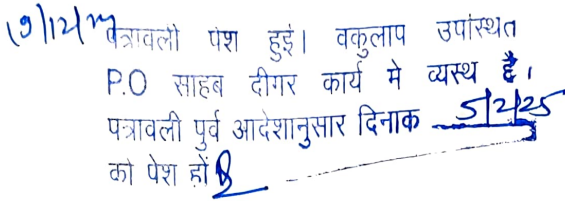 पत्रावली पेश हुई। वकुलाप उपस्थित
P.O साहब दीगर कार्य मे व्यस्थ है।
पत्रावली पुर्व आदेशानुसार दिनाक 5/2/25
को पेश हों